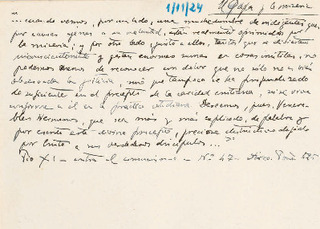 1/11/24 El Papa y la miseria
"...cuando vemos, por un lado, una muchedumbre de indigentes que,
por causas ajenas a su voluntad, están realmente oprimidos por
la miseria; y por otro lado, junto a ellos, tantos que se divierten
inconsideradamente y gastan enormes sumas en cosas inútiles, no
podemos menos de reconocer con dolor que no sólo no es bien
observada la justicia, sino que tampoco se ha profundizado
lo suficiente en el precepto de la caridad cristiana, ni se vive
conforme a él en la práctica cotidiana. Deseamos, pues, Venera-
bles Hermanos, que sea más y más explicado, de palabra y
por escrito este divino precepto, precioso distintivo dejado
por Cristo a sus verdaderos discípulos..."
Pío XI - contra el comunismo - Nº 47